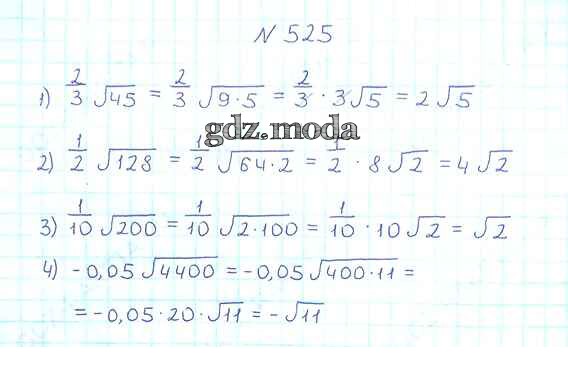 N 525
1) 2/3 √45 = 2/3 √9·5 = 2/3 · 3√5 = 2√5
gdz.moda
2) 1/2 √128 = 1/2 √64·2 = 1/2 · 8√2 = 4√2
3) 1/10 √200 = 1/10 √2·100 = 1/10 · 10√2 = √2
4) -0,05 √4400 = -0,05 √400·11 =
= -0,05 · 20 · √11 = -√11